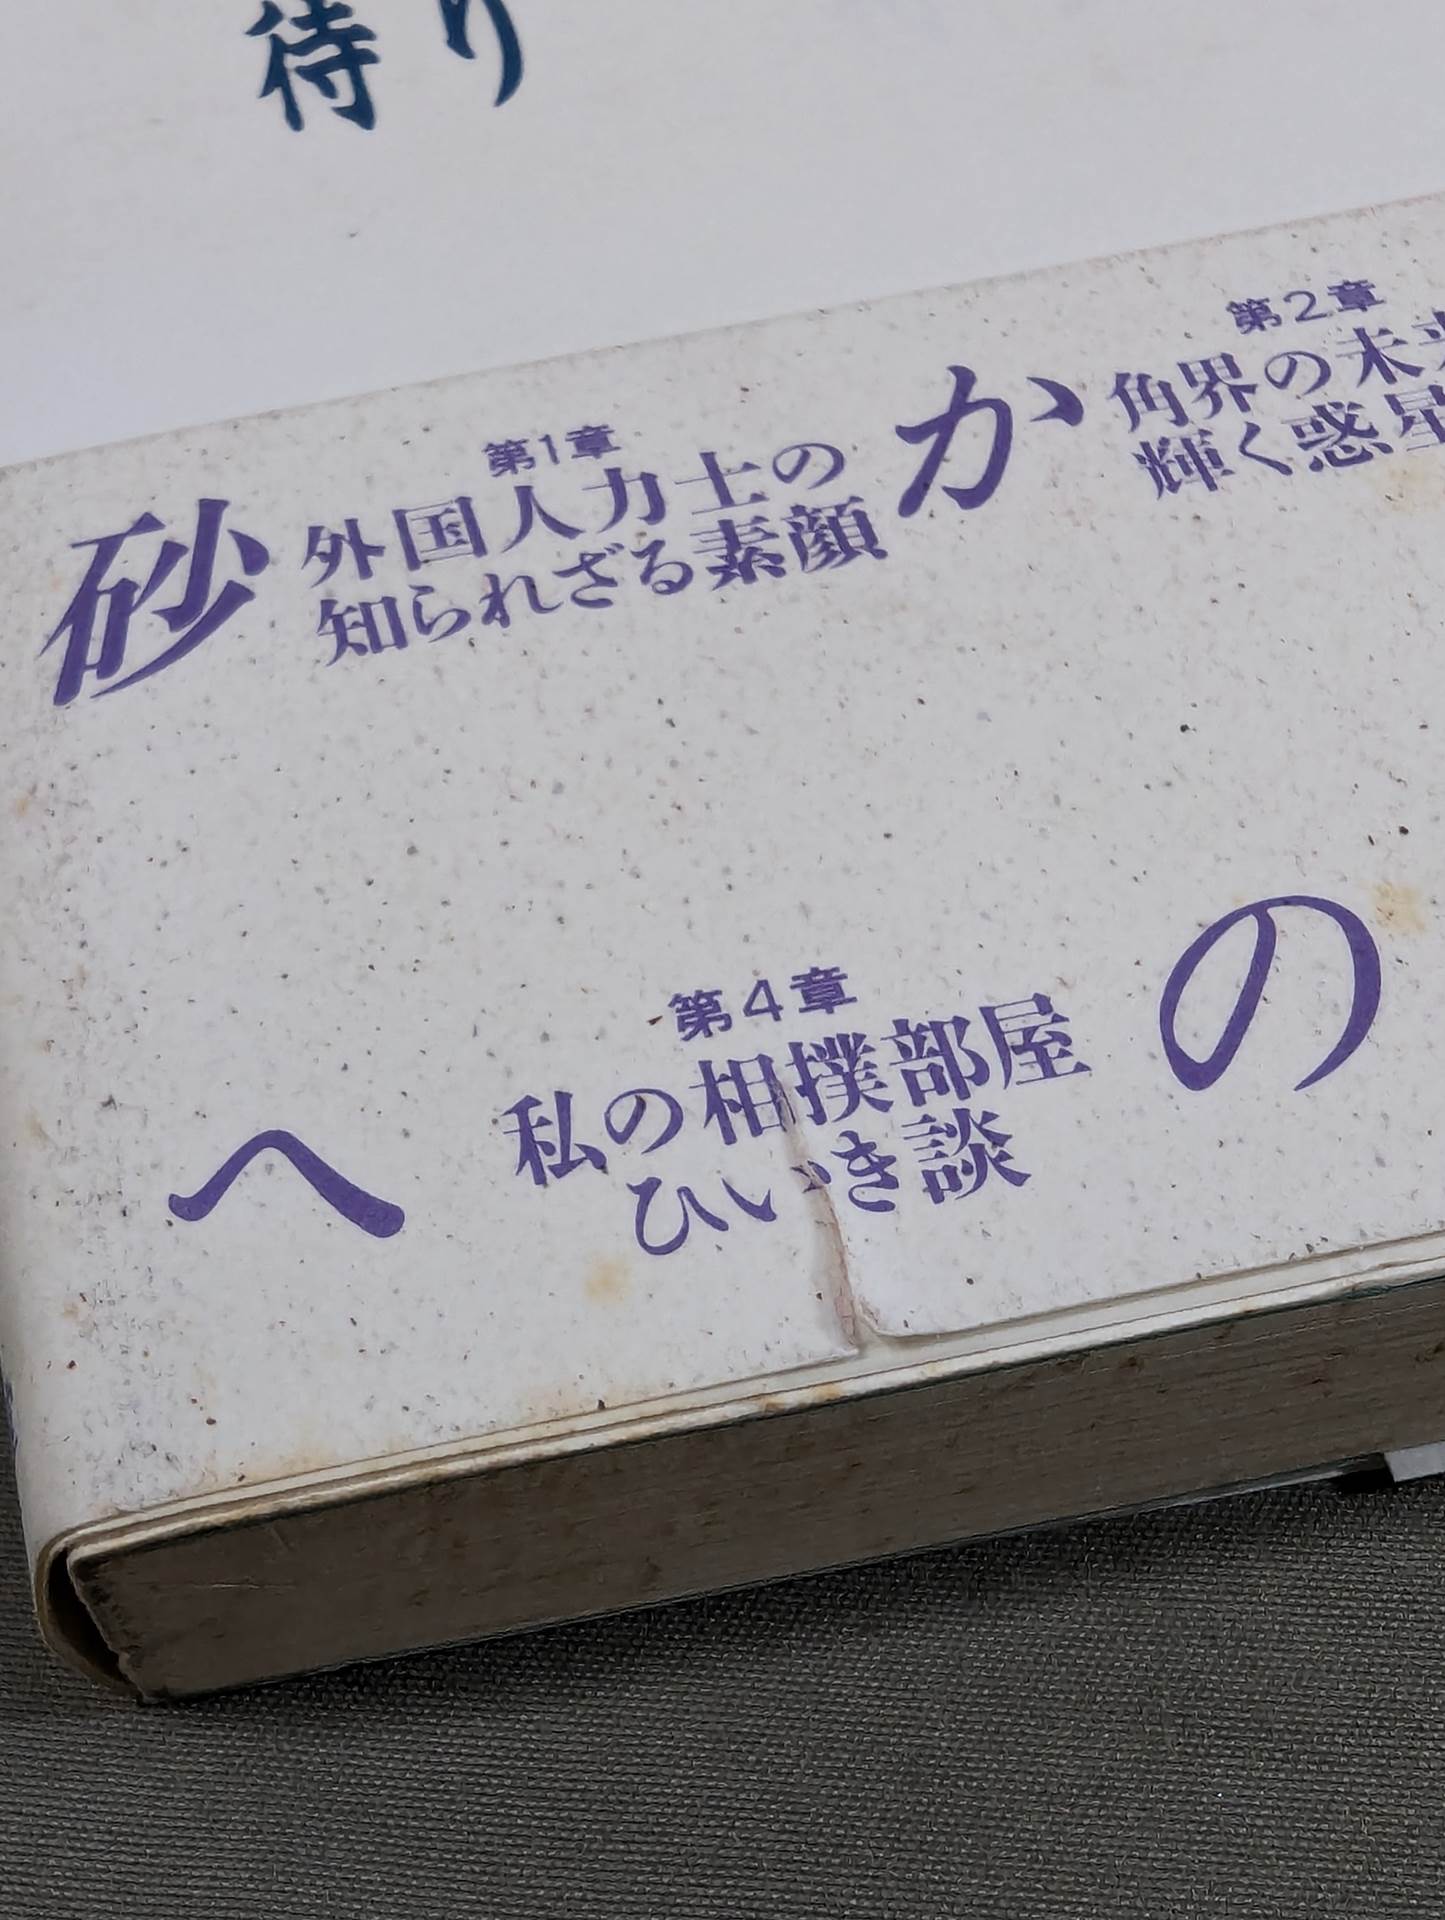 待り
砂
第1章
外国人力士の
知られざる素顔
か
第2章
角界の未来
輝く惑星
へ
第4章
私の相撲部屋
ひいき談
の